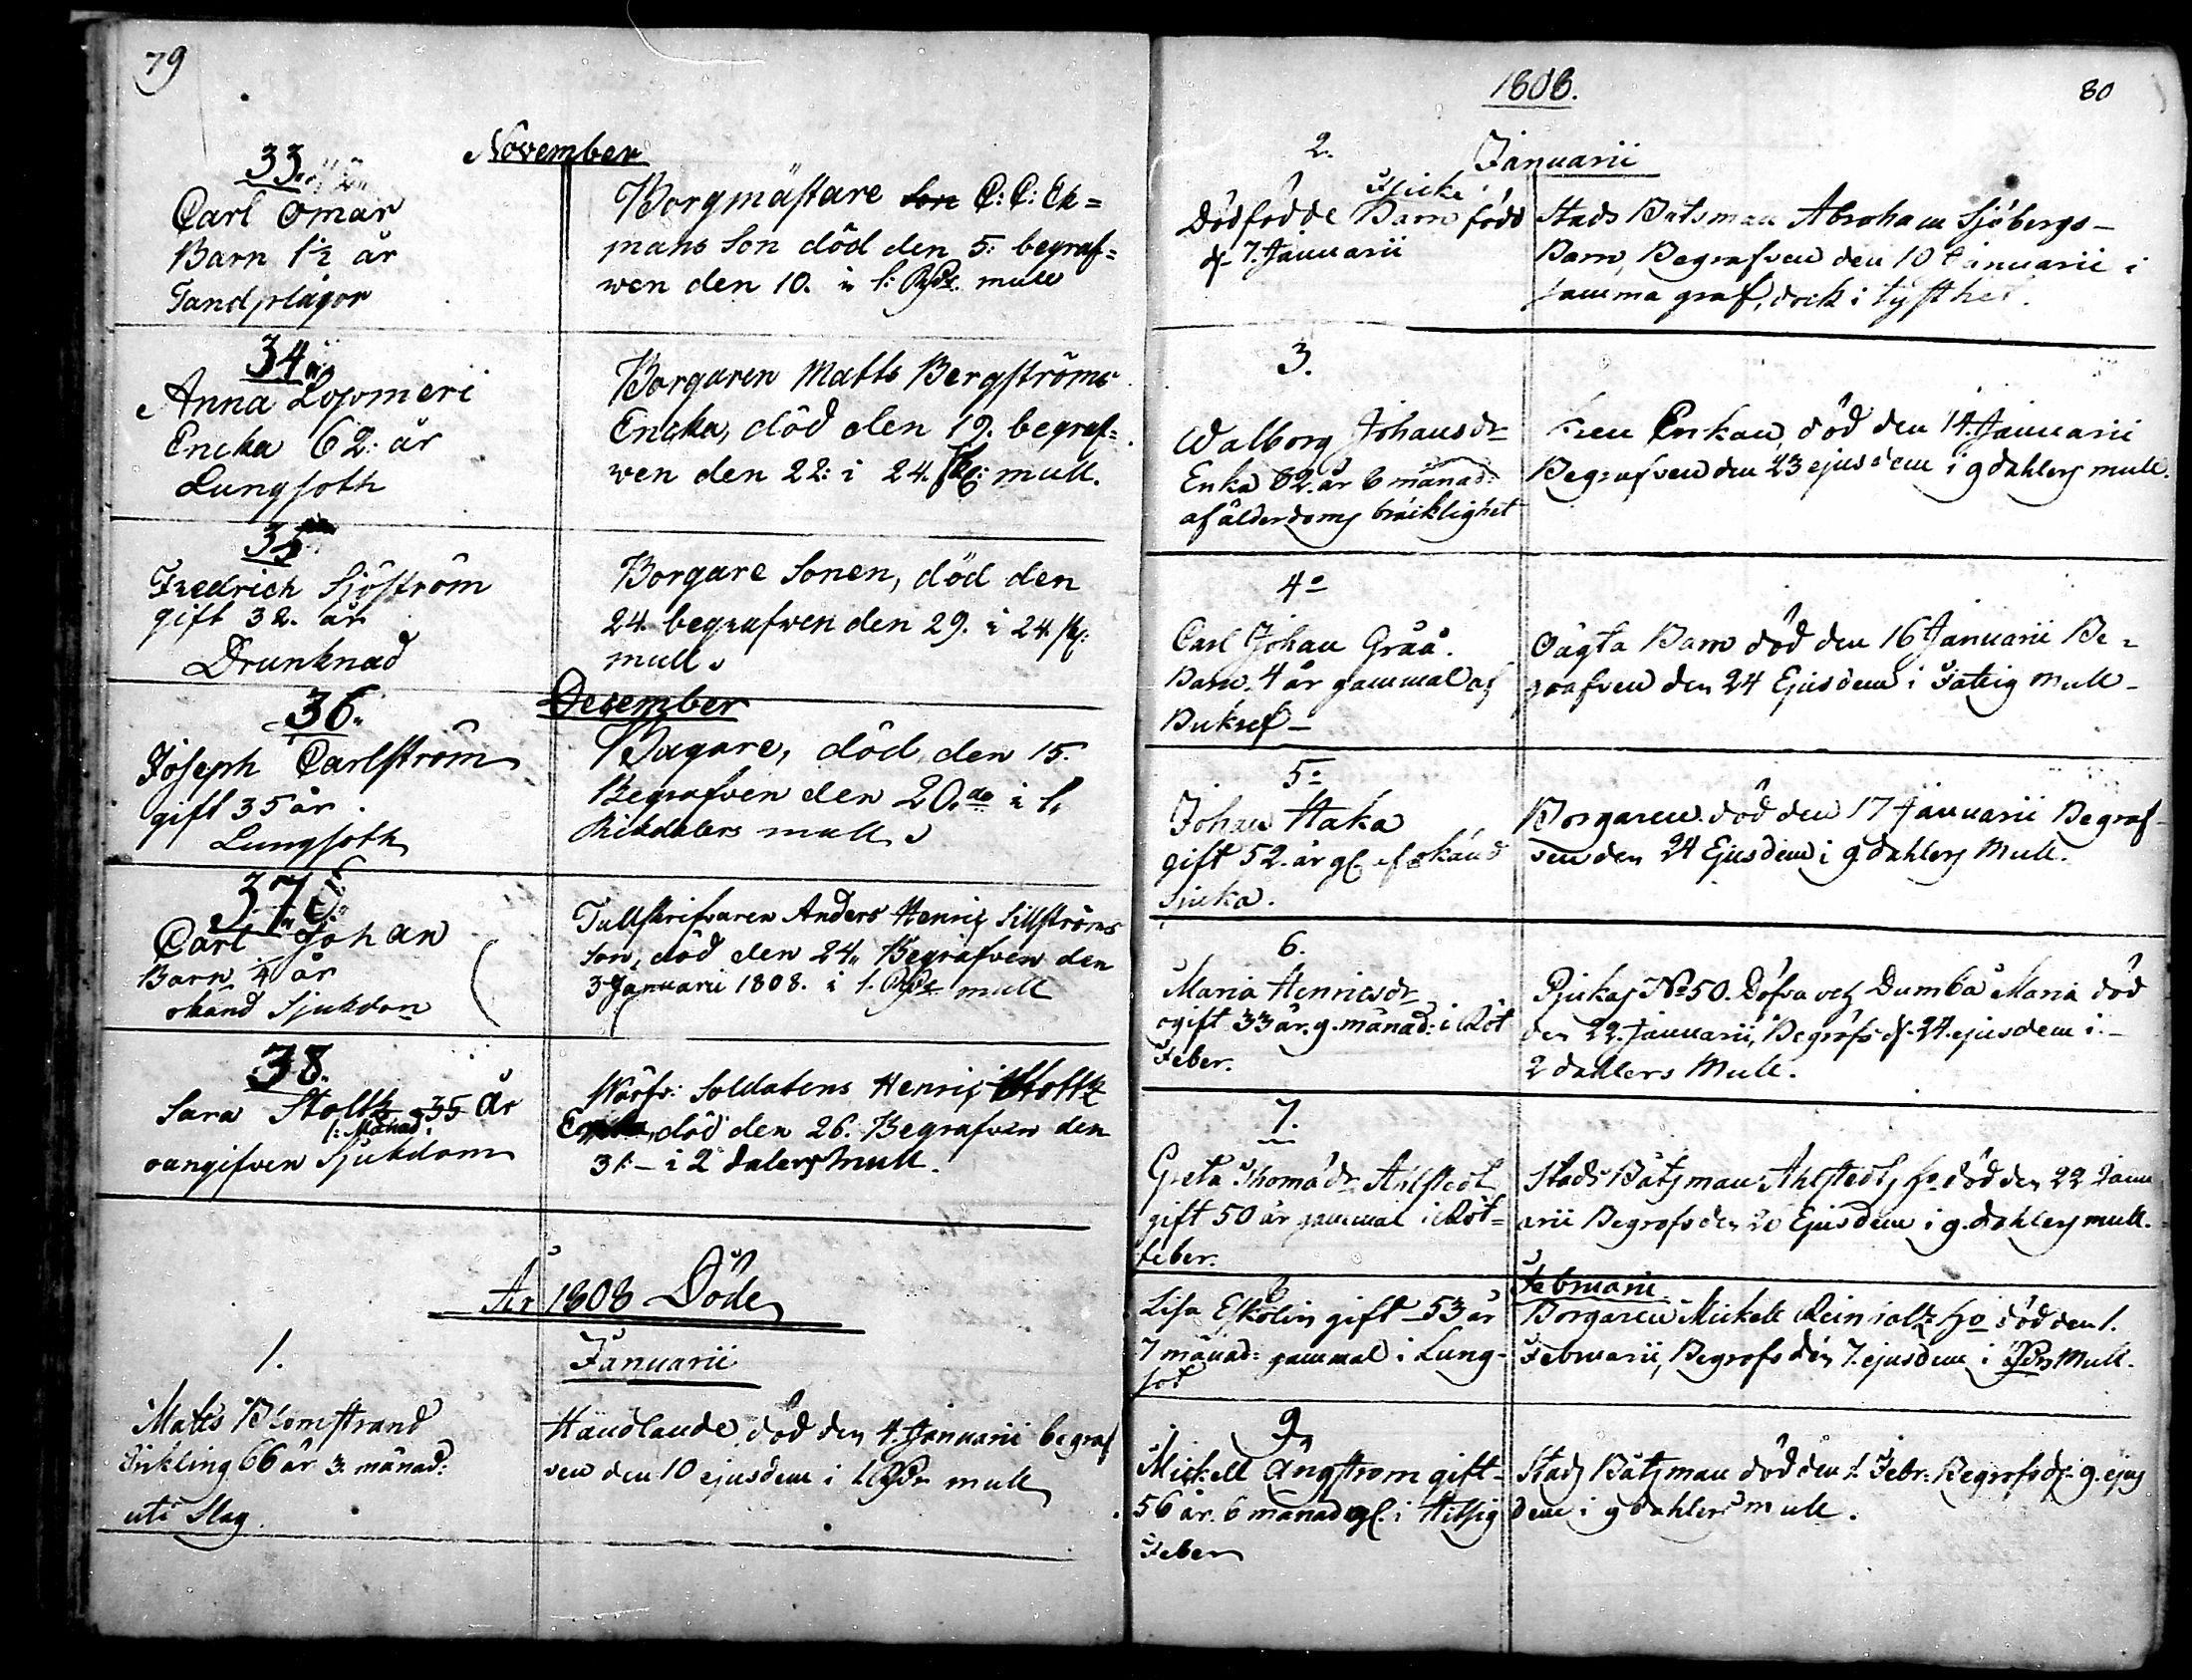 79
November
33.
Carl Omar
Barn 1½ år
Tandplågor
Borgmästare C: C: Ek=
mans Son död den 5: begraf=
wen den 10. i 1: Rdr mull
34
Anna
Encka 62: år
Lungsoth
Borgaren Matts Bergströms
Encka, död den 19. begraf=
ven den 22: i 24. sk: mull.
35
Fredrich Sjöström
gift 32. år
Drunknad
Borgare Sonen, död den
24. begrafven den 29. i 24. sk:
mull
36.
December
Joseph Carlström
gift 35 år.
Lungsoth
Bagare, död den 15.
Begrafven den 20.de i 1.
Rikdalers mull
37
Carl Johan
Barn ¼ år
okänd Sjukdom
Tullskrifvaren Anders Henric Sillströms
Son, död den 24. Begrafven den
3 Januarii 1808. i 1. Rdr mull
38.
Sara Stoltz 35 år
1: Månad:
oangifven Sjukdom
Wärfv: Soldatens Henric Stoltz
död den 26. Begrafven den
31:– i 2 dalers Mull.
År 1808 Döde
1.
Januarii
Matts Blomstrand
Enkling 66 år 3 månad:
uti Slag.
Handlande, död den 4. Januarii begraf
ven den 10 ejusdem i 1 Rdr mull
1808.
80
2.
Januarii
Flicke
Dödfödde Barn född
d. 7. Januarii
Stads Båtsman Abraham Sjöbergs–
Barn, Begrafven den 10 Januarii i
samma graf, dock i tysthet.
3.
Walborg Johansdr
Enka 82. år 6 månad:
af ålderdoms bräcklighet
Enkan, död den 14. Januarii
Begrafven den 23 ejusdem i 9 dahlers mull.
4
Carl Johan Gråå.
Barn. 4 år gammal af
Bukref–
Oägta Barn död den 16 Januarii Be=
grafven den 24 Ejusdem i Fatig mull–
5
Johan Haka
gift 52. år gl. af okänd
Siuka.
Borgaren. död den 17 Januarii Begraf–
ven den 24 Ejusdem i 9 dahlers Mull.
6.
Maria Henricsdr
ogift 33 år. 9. månad: i Röt
Feber.
Pjukas No 50. Döfva och Dumba Maria död
den 22. Januarii, Begrofs d. 24. ejusdem i–
2 dahlers Mull.
7.
Greta Thomædr Ahlstedt
gift 50 år gammal i Röt=
feber.
Stads Båtsman Ahlstedts Ho död den 22 Janu
arii Begrofs den 26 Ejusdem i 9. dahlers mull.
Februarii
8
Lisa Eskolin gift 53 år
7 månad: gammal i Lung–
sot
Borgaren Mickell Reinholtz Ho död den 1.
Februarii, Begrofs den 7. ejusdem i Rdrs Mull.
9
Mickell Ångström gift–
56 år. 6 månad gl. i Hitsig
Feber
Stads Båtsman död den 1. Febr: Begrofs d. 9. ejus
dem i 9 dahlers mull.